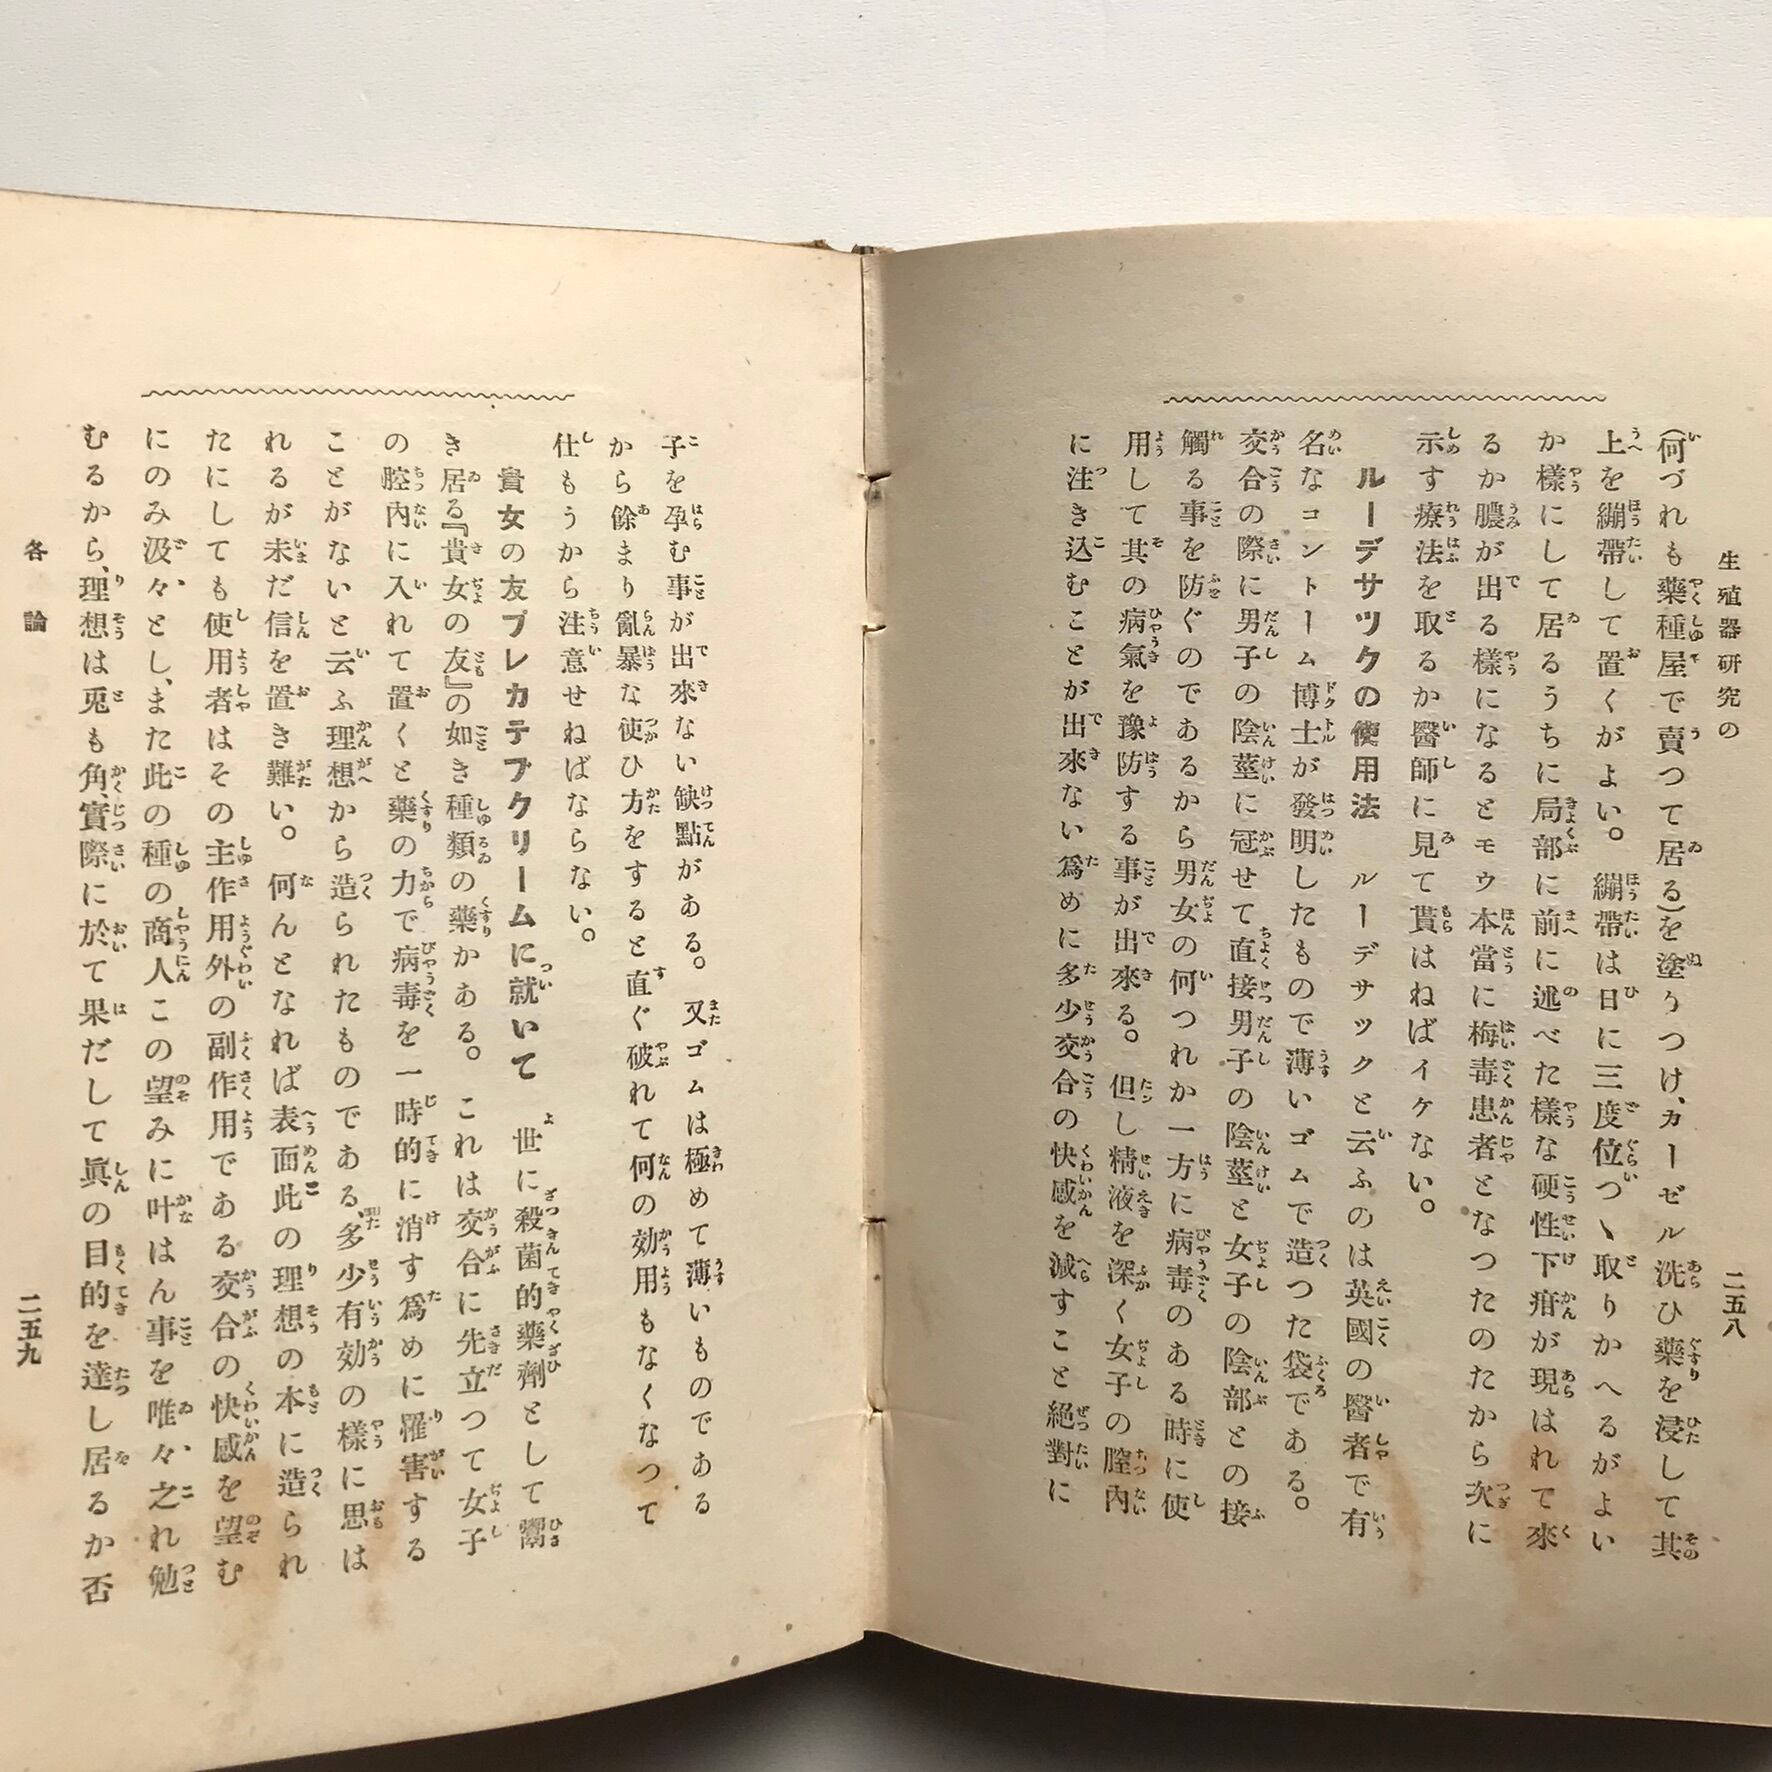 生殖器研究の
二五八
(何づれも藥種屋で賣つて居る)を塗りつけ、カーゼル洗ひ藥を浸して其
上を繃帶して置くがよい。繃帶は日に三度位つゝ取りかへるがよい
か樣にして居るうちに局部に前に述べた樣な硬性下疳が現はれて來
るか膿が出る樣になるとモウ本當に梅毒患者となつたのたから次に
示す療法を取るか醫師に見て貰はねばイケない。
ルーデサツクの使用法 ルーデサックと云ふのは英國の醫者で有
名なコントーム博士が發明したもので薄いゴムで造つた袋である。
交合の際に男子の陰莖に冠せて直接男子の陰莖と女子の陰部との接
觸る事を防ぐのであるから男女の何つれか一方に病毒のある時に使
用して其の病氣を豫防する事が出來る。但し精液を深く女子の膣內
に注き込むことが出來ない爲めに多少交合の快感を減すこと絕對に
子を孕む事が出來ない缺點がある。又ゴムは極めて薄いものである
から餘まり亂暴な使ひ方をすると直ぐ破れて何の効用もなくなつて
仕もうから注意せねばならない。
貴女の友プレカテブクリームに就いて 世に殺菌的藥劑として鬻
き居る『貴女の友』の如き種類の藥かある。これは交合に先立つて女子
の腔內に入れて置くと藥の力で病毒を一時的に消す爲めに罹害する
ことがないと云ふ理想から造られたものである、多少有効の樣に思は
れるが未だ信を置き難い。何んとなれば表面此の理想の本に造られ
たにしても使用者はその主作用外の副作用である交合の快感を望む
にのみ汲々とし、また此の種の商人この望みに叶はん事を唯々之れ勉
むるから、理想は兎も角、實際に於て果だして眞の目的を達し居るか否
各論
二五九